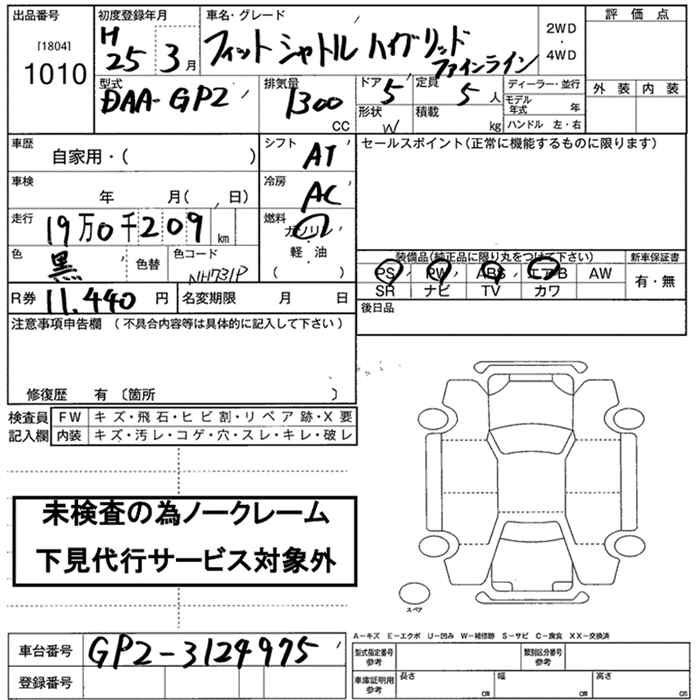 出品番号 [1804] 1010
初度登録年月 H 25 3月
車名・グレード フィットシャトル ハイブリッド ファインライン
2WD ・ 4WD
評価点
外装 内装
型式 DAA-GP2
排気量 1300 CC
ドア 5
形状 W
定員 5 人
積載 kg
ディーラー・並行
モデル年式 年
ハンドル 左・右
車歴 自家用・( )
シフト AT
セールスポイント(正常に機能するものに限ります)
車検 年 月( 、 日)
冷房 AC
走行 19万0千209 km
燃料 ガソリン 軽・油 ( )
色 黒 色替 色コード NH731P
装備品(純正品に限り丸をつけて下さい)
新車保証書
PS PW ABS エアB AW 有・無
SR ナビ TV カワ
R券 11,440円 名変期限 月 日
後日品
注意事項申告欄 (不具合内容等は具体的に記入して下さい)
修復歴 有 〔箇所 〕
検査員 記入欄
FW キズ・飛石・ヒビ割・リペア跡・X要
内装 キズ・汚レ・コゲ・穴・スレ・キレ・破レ
未検査の為ノークレーム
下見代行サービス対象外
スペア
A−キズ E−エクボ U−凹み W−補修跡 S−サビ C−腐食 XX−交換済
車台番号 GP2-3124975
登録番号
型式指定番号 参考
類別区分番号 参考
車庫証明用 参考 長さ cm 幅 cm 高さ cm